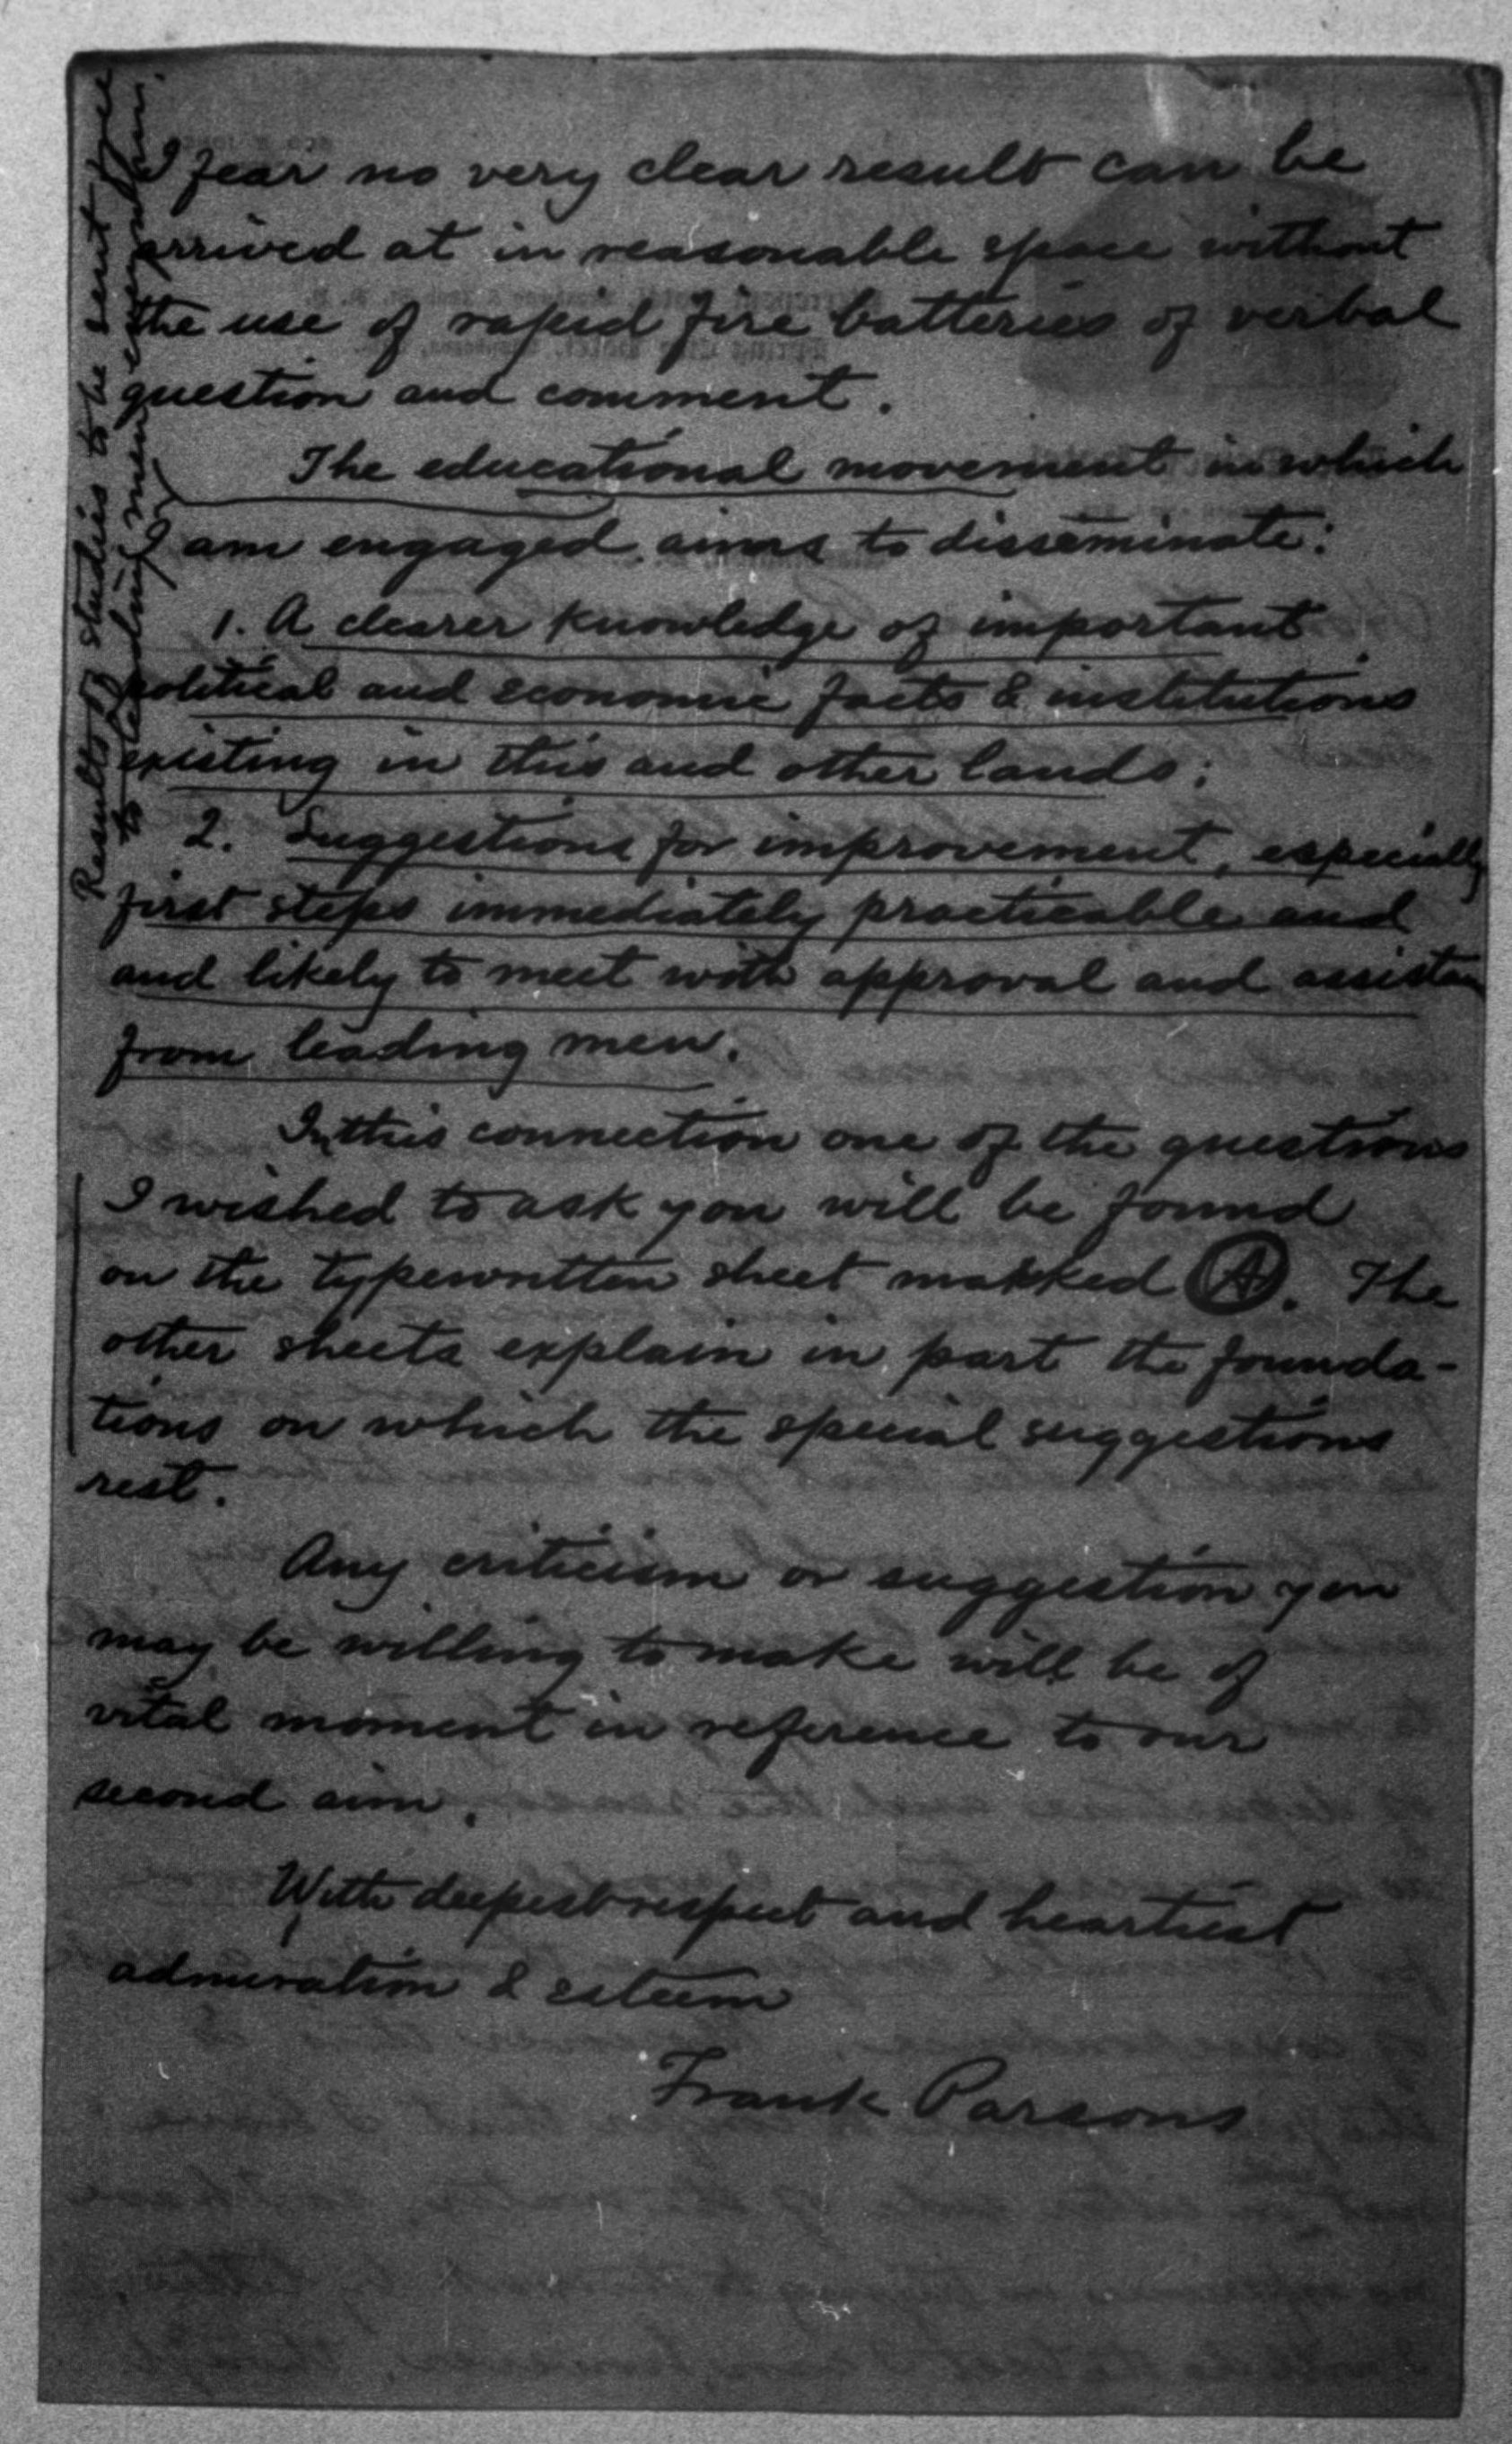 I fear no very clear result can be
arrived at in reasonable space without
the use of rapid fire batteries of verbal
question and comment.
The educational movement in which
I am engaged aims to disseminate:
1. A clearer knowledge of important
political and economic facts & institutions
existing in this and other lands;
2. Suggestions for improvement, especially
first steps immediately practicable and
and likely to meet with approval and assistan
from leading men.
In this connection one of the questions
I wished to ask you will be found
on the typewritten sheet marked A. The
other sheets explain in part the founda-
tions on which the special suggestions
rest.
Any criticism or suggestion you
may be willing to make will be of
vital moment in reference to our
second aim.
With deepest respect and heartiest
admiration & esteem
Frank Parsons
Results of studies to be sent free
to leading men everywhere.